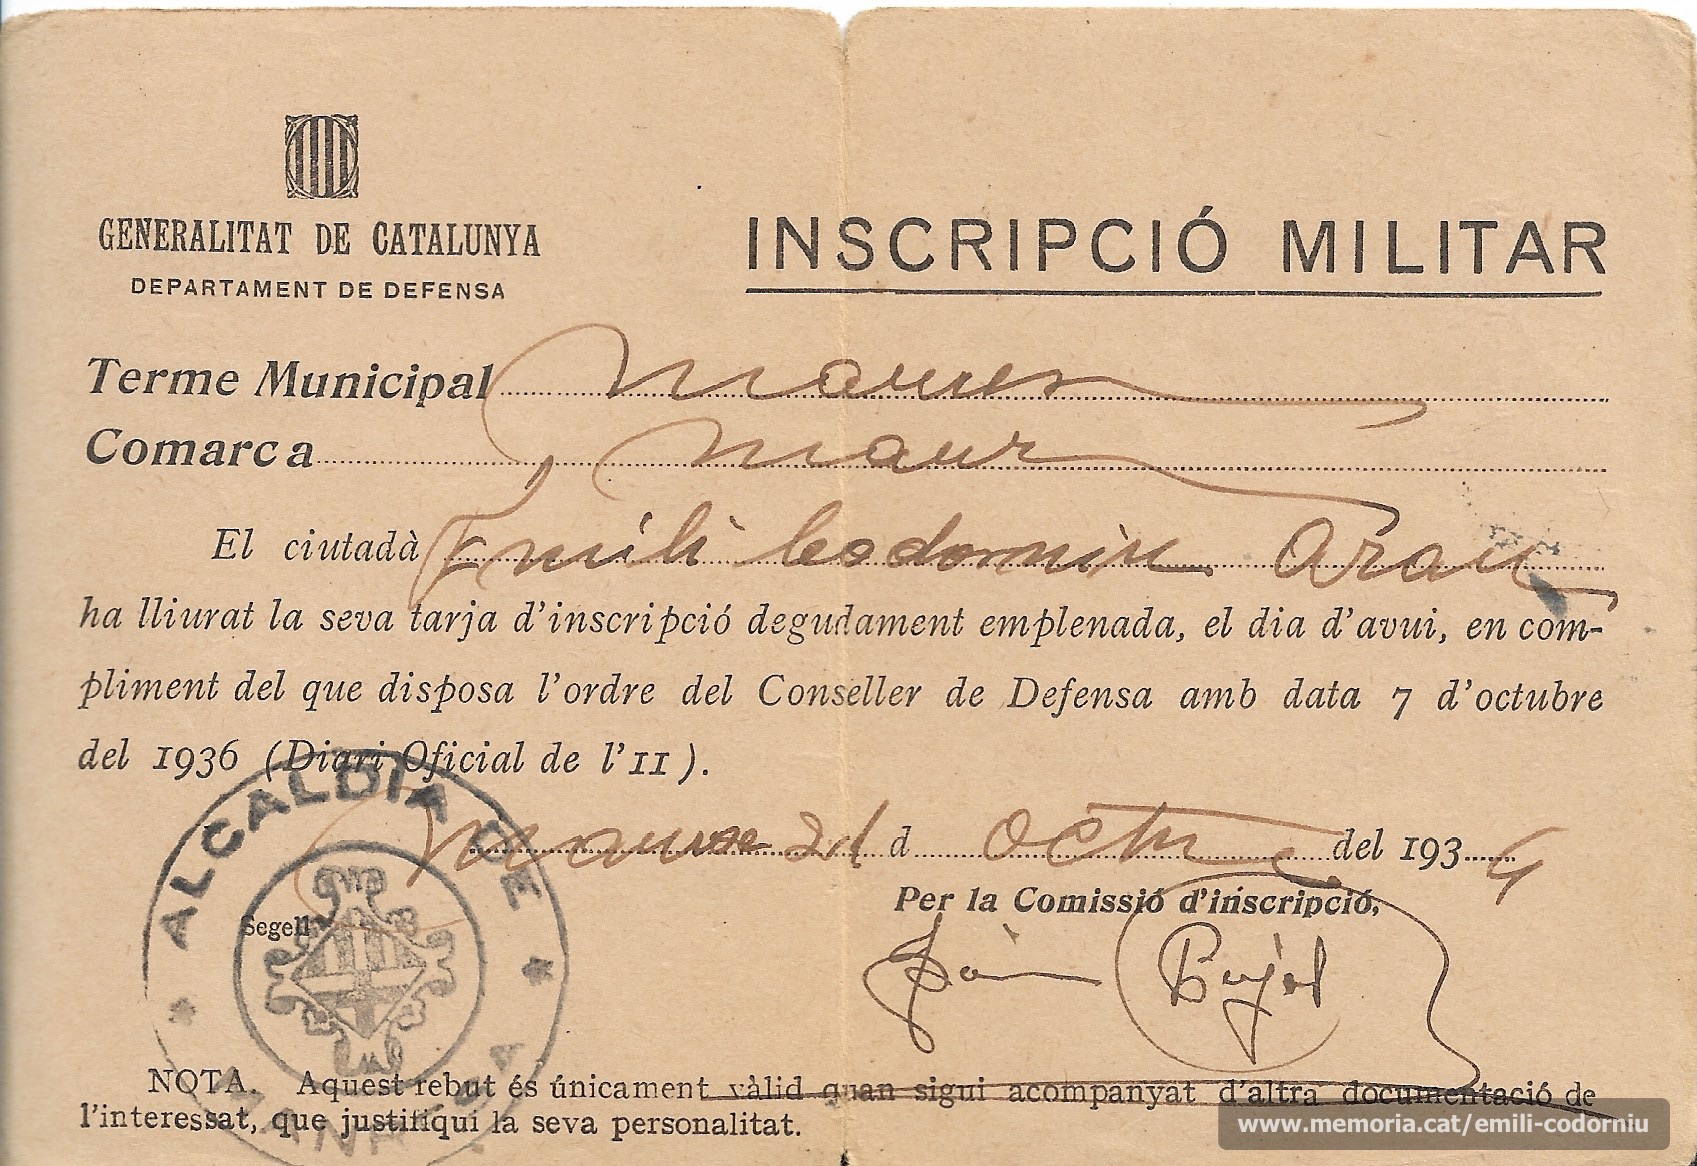 GENERALITAT DE CATALUNYA
DEPARTAMENT DE DEFENSA
INSCRIPCIÓ MILITAR
Terme Municipal
Comarca
El ciutadà Emili Codorniu Arau
ha lliurat la seva tarja d'inscripció degudament emplenada, el dia d'avui, en com-
pliment del que disposa l'ordre del Conseller de Defensa amb data 7 d'octubre
del 1936 (Diari Oficial de l'11).
d octubre del 193
Per la Comissió d'inscripció,
Segell
ALCALDIA DE
MANRESA
NOTA. Aquest rebut és únicament vàlid quan sigui acompanyat d'altra documentació de
l'interessat, que justifiqui la seva personalitat.
www.memoria.cat/emili-codorniu